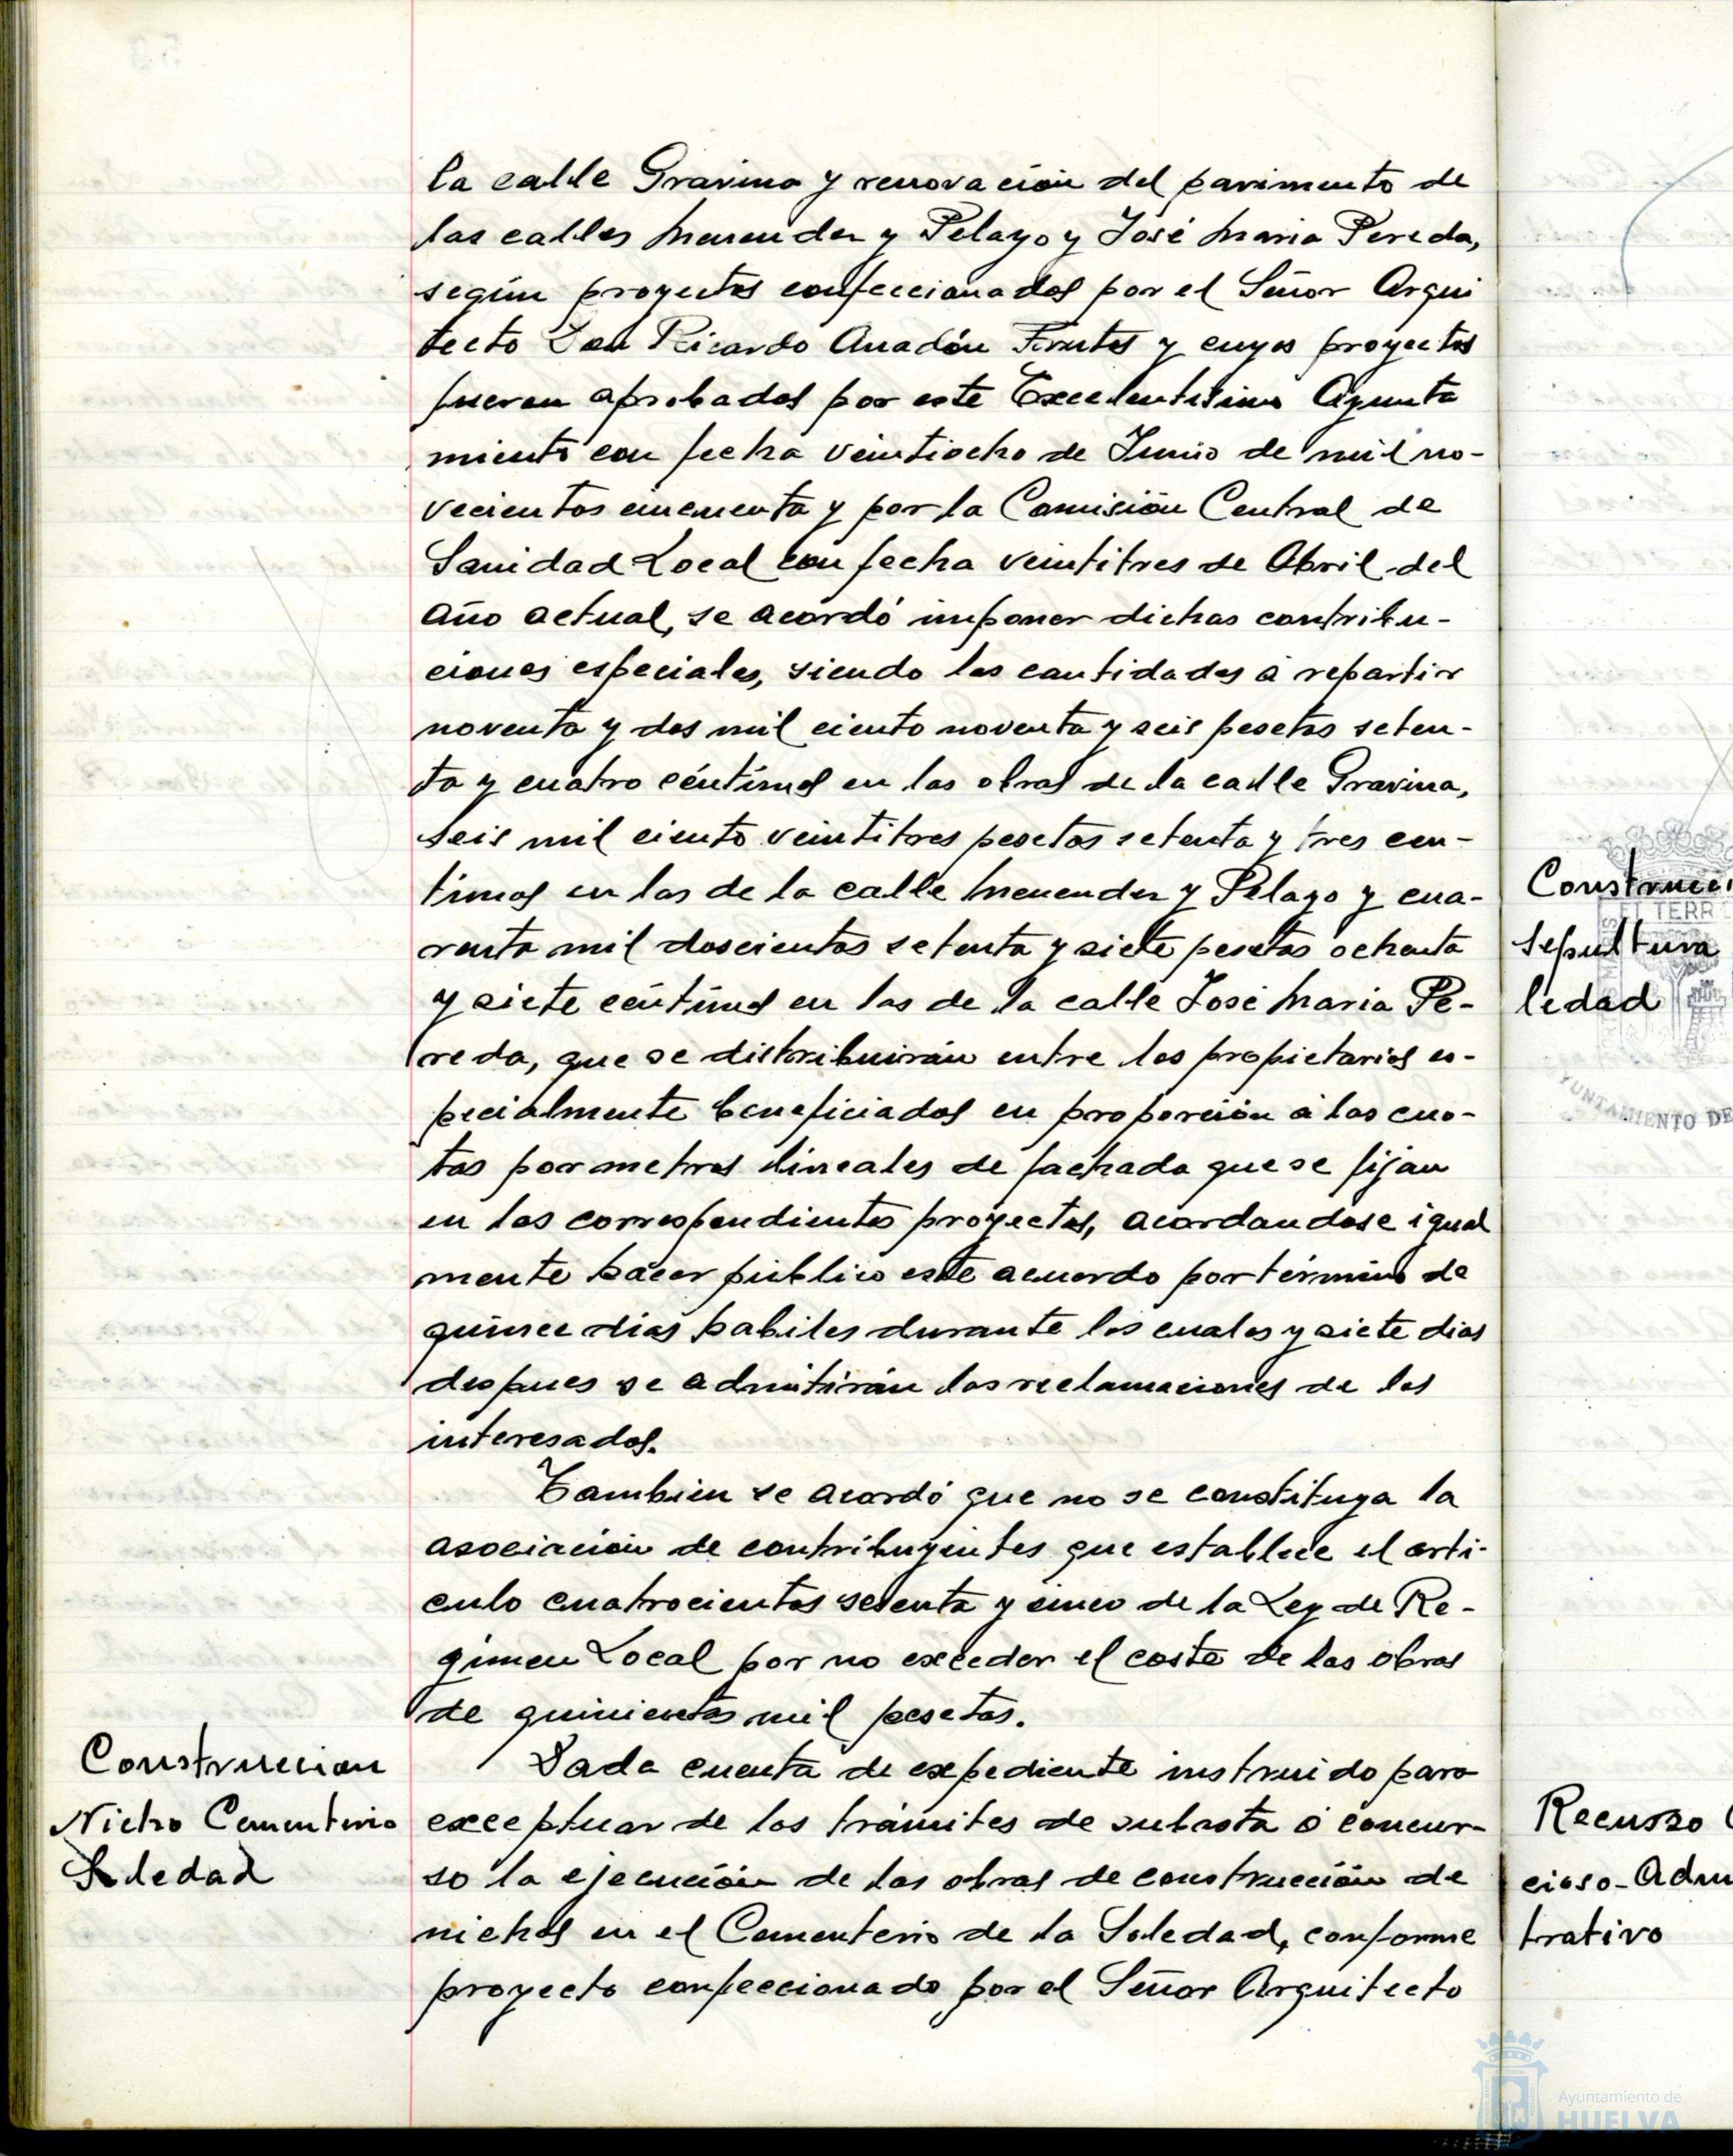 la calle Gravina y renovación del pavimento de
las calles Menendez y Pelayo y José Maria Pereda,
según proyectos confeccionados por el Señor Arqui
tecto Don Ricardo Anadón Frutos y cuyos proyectos
fueron aprobados por este Excelentisimo Ayunta
miento con fecha veintiocho de Junio de mil no-
vecientos cincuenta y por la Comisión Central de
Sanidad Local con fecha veintitres de Abril del
año actual, se acordó imponer dichas contribu-
ciones especiales, siendo las cantidades á repartir
noventa y dos mil ciento noventa y seis pesetas seten-
ta y cuatro céntimos en las obras de la calle Gravina,
seis mil ciento veintitres pesetas setenta y tres cen-
timos en las de la calle Menendez y Pelayo y cua-
renta mil doscientas setenta y siete pesetas ochenta
y siete céntimos en las de la calle José Maria Pe-
reda, que se distribuirán entre los propietarios es-
pecialmente beneficiados en proporción á las cuo-
tas por metros lineales de fachada que se fijan
en los correspondientes proyectos, acordandose igual
mente hacer público este acuerdo por término de
quince dias habiles durante los cuales y siete dias
despues se admitirán las reclamaciones de los
interesados.
Tambien se acordó que no se constituya la
asociación de contribuyentes que establece el arti-
culo cuatrocientos sesenta y cinco de la Ley de Re-
gimen Local por no exceder el coste de las obras
de quinientas mil pesetas.
Construccion
Nicho Cementerio
Soledad
Dada cuenta de expediente instruido para
exceptuar de los trámites de subasta ó concur-
so la ejecución de las obras de construcción de
nichos en el Cementerio de la Soledad, conforme
proyecto confeccionado por el Señor Arquitecto
Construcci
Sepultura
ledad
TERR
YUNTAMIENTO DE
Recurso
cioso-Adm
trativo
Ayuntamiento de
HUELVA